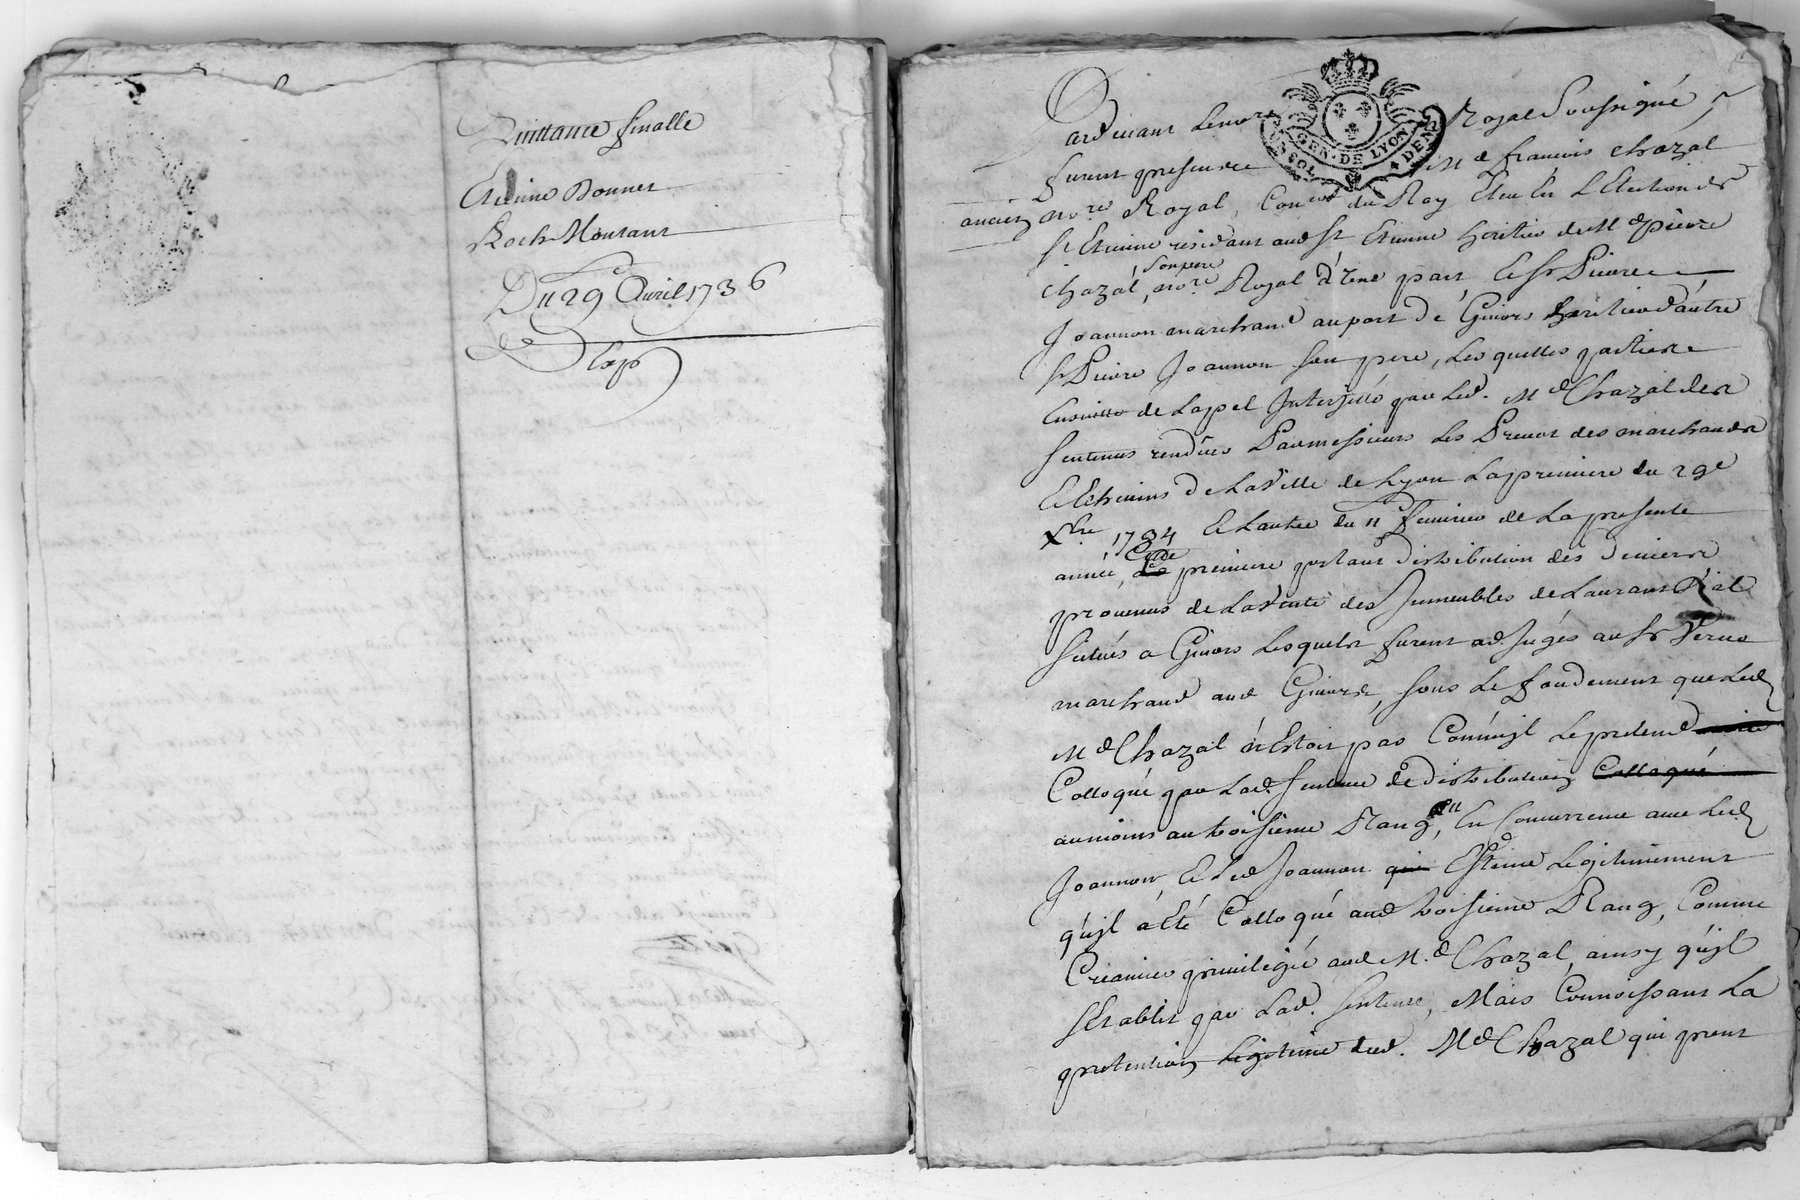 Quittance finalle
Etienne Bonnet
Roch Montant
Du 29 Avril 1736
GEN. DE LYON
Pardevant le no.re Royal Soussigné
furent presents M.e françois Chazal
ancien no.re Royal, Con.er du Roy Eleu En L'Election de
St Etienne residant aud St Etienne heritier de M.e pierre
Chazal, son pere no.re Royal d'Une part Et Sr Pierre
Joannon marchand au port de Givors heritier d'autre
Sr Pierre Joannon Son pere, Les quelles parties
Ensuitte de Lapel Interjetté par led. M.e Chazal des
Sentences rendües Par messieurs Les Prevot des marchands
Et Echevins de La Ville de Lyon La premiere du 29e
Xbre 1734 Et Lautre du 11 fevrier de La presente
année, Cette premiere portant distribution des deniers
provenus de La Vente des Immeubles de Laurans Rial
Situés a Givors Lesquels furent adjugés au Sr
marchand aud Givors, Sous Le fondement que Led
M.e Chazal n'Estoit pas Comm'jl Le pretend
Colloqué par Lad. Sentence de distribution Colloqué
au moins au troisieme Rang, En Concurrence avec Led
Joannon, Et Led Joannon qui Estime Legitimement
qu'jl a Eté Colloqué aud troisieme Rang, Comme
Creancier privilegié aud M.e Chazal, ainsy qu'jl
S'Etablit par Lad. Sentence, Mais Connoissant La
pretention Legitime dud. M.e Chazal qui prent